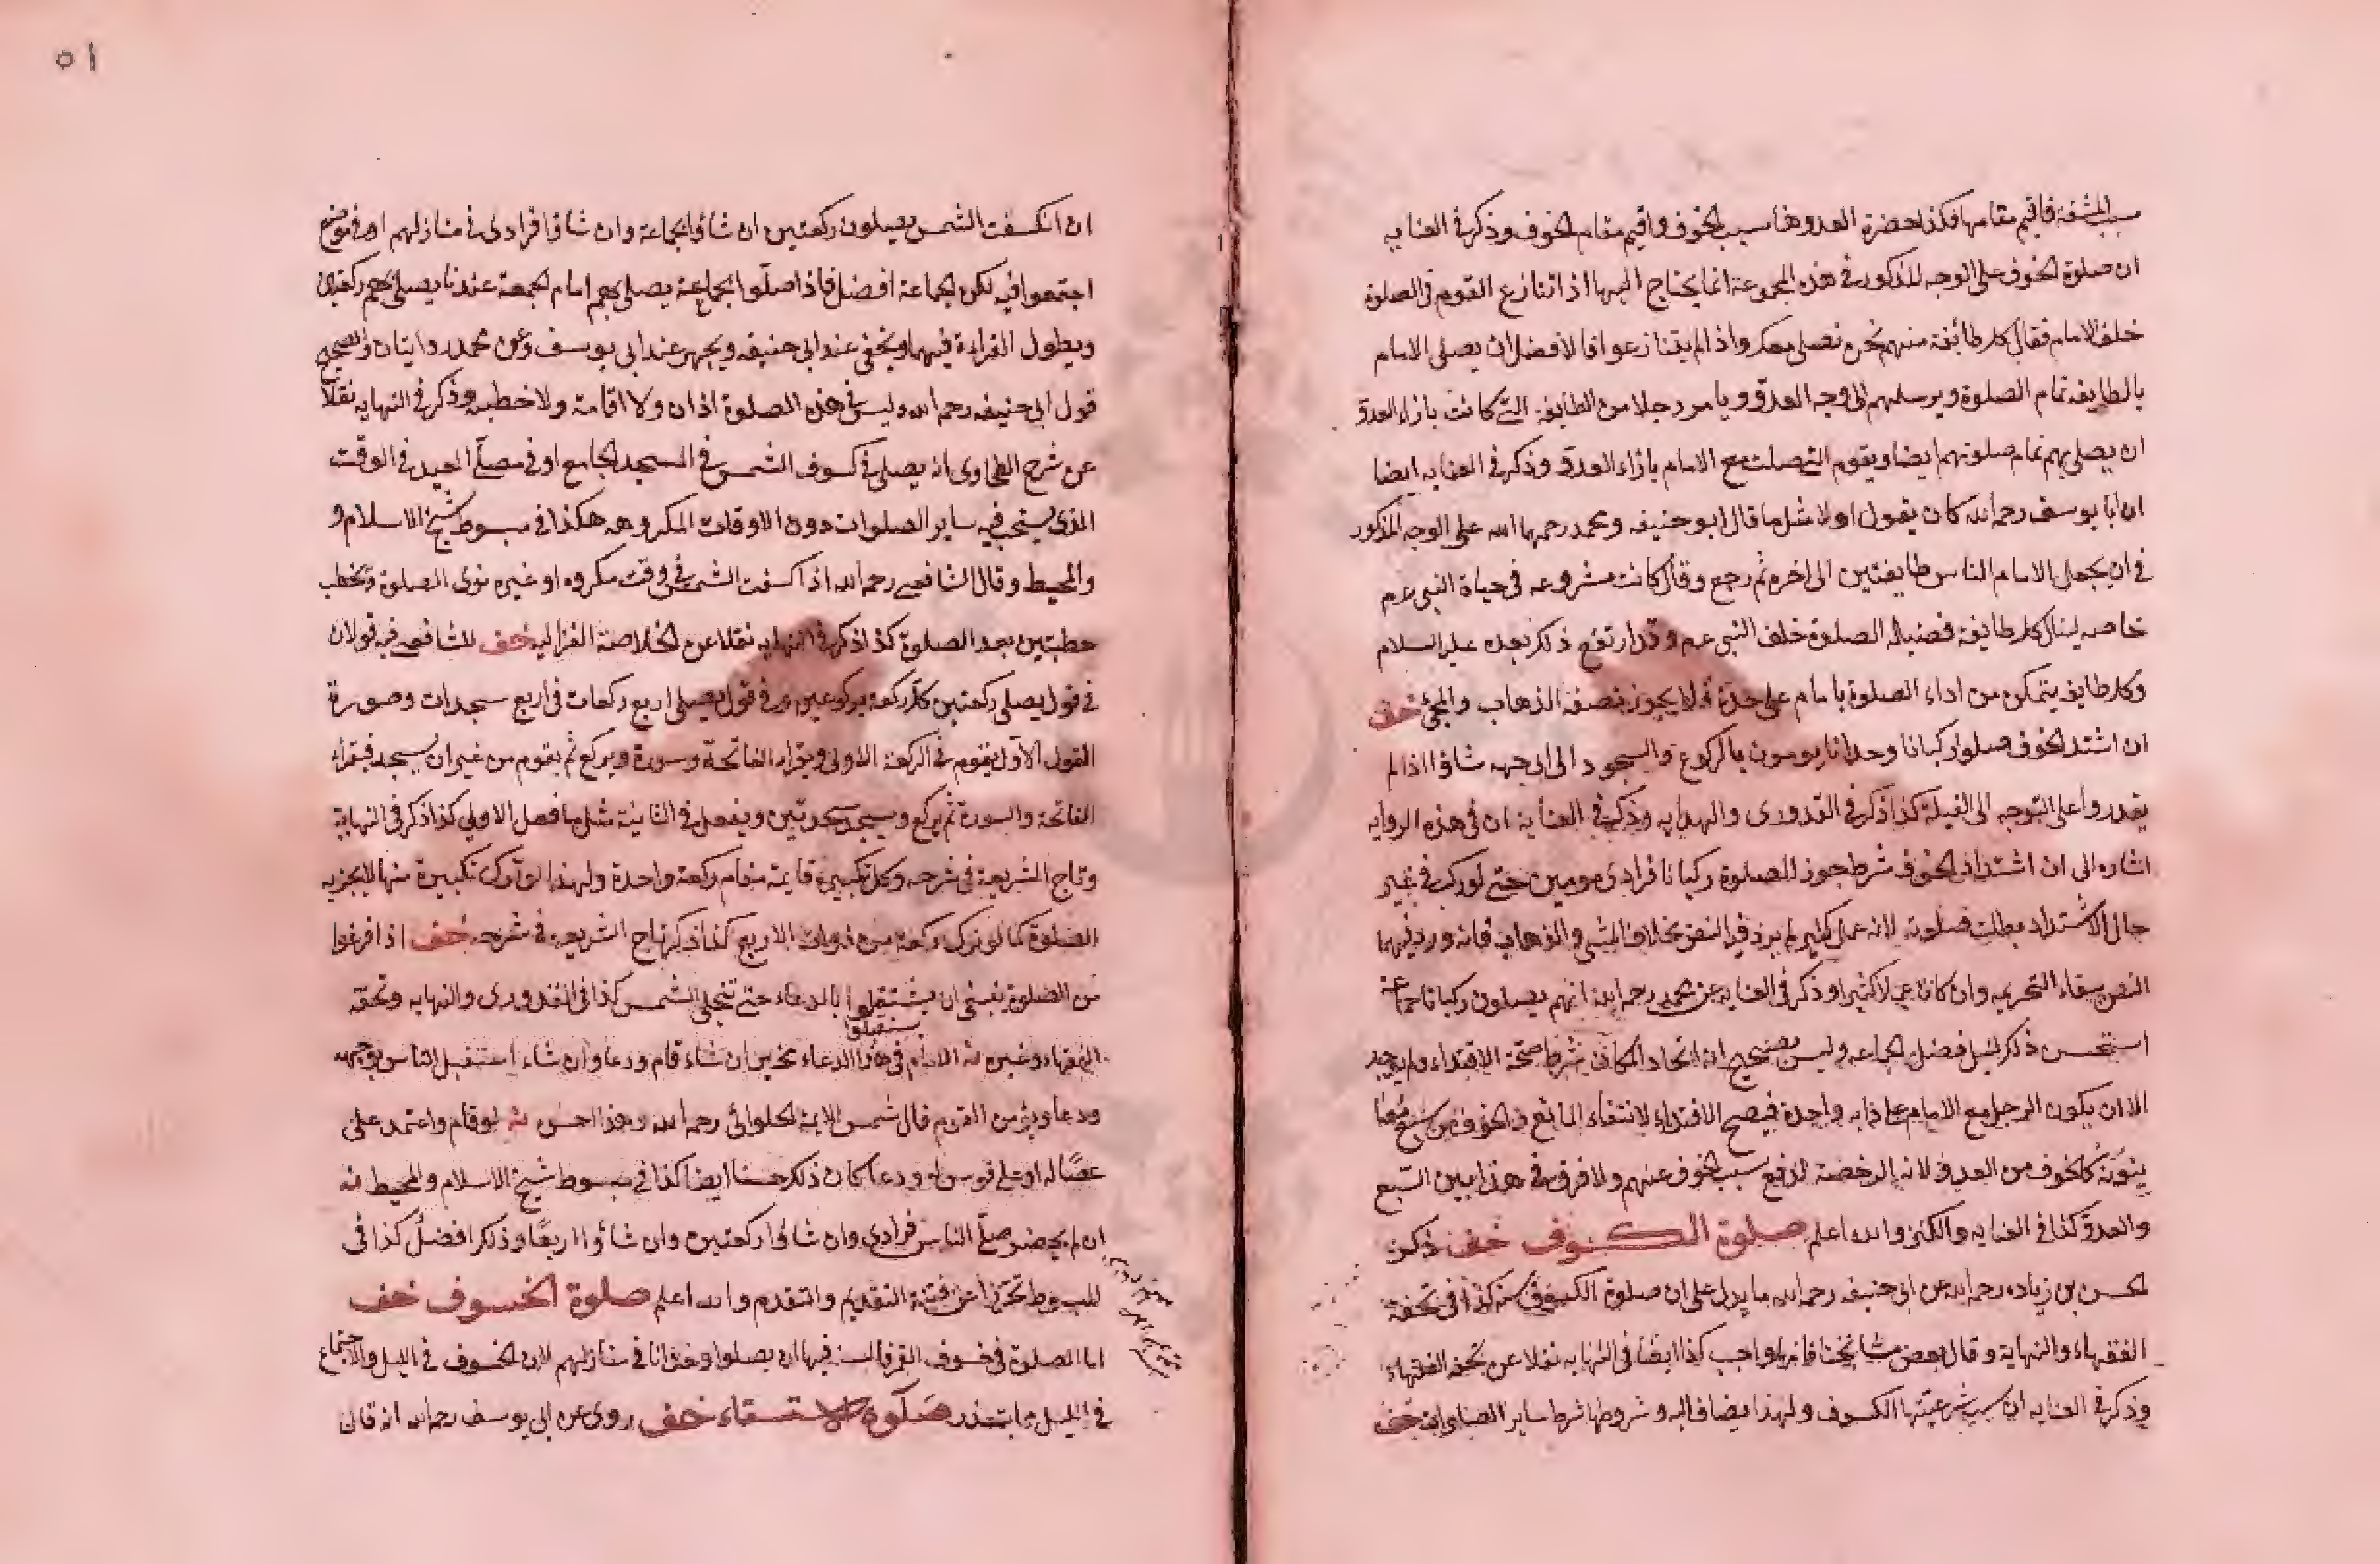 سبب المشقة فاقيم مقامها فكذا حضرة العدو هنا سبب الخوف واقيم مقام الخوف وذكر في العنايه
ان صلوة الخوف على الوجه المذكور في هذه المجموعة انما يحتاج اليها اذا تنازع القوم في الصلوة
خلف الامام فقال كل طائفة منهم نحن نصلى معك واذا لم يتنازعوا فالافضل ان يصلى الامام
بالطايفه تمام الصلوة ويرسلهم الى وجه العدو ويامر رجلا من الطايفة التى كانت بازاء العدو
ان يصلى بهم تمام صلوتهم ايضا ويقوم التى صلت مع الامام بازاء العدو وذكر في العنايه ايضا
ان ابا يوسف رحمه الله كان يقول اولا مثل ما قال ابو حنيفه ومحمد رحمهما الله على الوجه المذكور
في ان يجعل الامام الناس طايفتين الى اخره ثم رجع وقال كانت مشروعه في حياة النبى عم
خاصه لينال كل طايفة فضيلة الصلوة خلف النبى عم وقد ارتفع ذلك بعده عليه السلام
وكل طايفه يتمكن من اداء الصلوة بامام على حدة فلا يجوز بصفة الذهاب والمجئ خف
ان اشتد الخوف صلوا ركبانا وحدانا يومون بالركوع والسجود الى اى جهه شاؤا اذا لم
يقدروا على التوجه الى القبلة كذا ذكر في القدورى والهدايه وذكر في العناية ان في هذه الروايه
اشاره الى ان اشتداد الخوف شرط جواز الصلوة ركبانا فرادى مومين حتى لو ركب في غير
حال الاشتداد بطلت صلوته لانه عمل كثير لم يرد فيه النص بخلاف المشى والذهاب فانه ورد فيهما
النص ببقاء التحريمه وان كانا عملا كثيرا وذكر في العنايه عن محمد رحمه الله انهم يصلون ركبانا جماعة
استحسن ذلك لنيل فضل الجماعه وليس بصحيح لان اتحاد المكان شرط صحة الاقتداء ولم يوجد
الا ان يكون الرجل مع الامام على دابه واحدة فيصح الاقتداء لانتفاء المانع والخوف من سبع
كالخوف من العدو لانه الرخصة لدفع سبب الخوف عنهم ولا فرق في هذا بين السبع
والعدو كذا في العنايه والكنز والله اعلم صلوة الكسوف خف ذكر
الحسن بن زياد رحمه الله عن ابى حنيفه رحمه الله ما يدل على ان صلوة الكسوف سنة كذا في تحفة
الفقهاء والنهاية وقال بعض مشايخنا انها واجب كذا ايضا في النهايه نقلا عن تحفه الفقهاء
وذكر في العنايه ان سبب شرعيتها الكسوف ولهذا يضاف اليه وشروطها شرط ساير الصلوات خف
٥١
ان انكسفت الشمس يصلون ركعتين ان شاؤا بجماعة وان شاؤا فرادى في منازلهم او في موضع
اجتمعوا فيه لكن الجماعة افضل فاذا صلوا بجماعة يصلى بهم امام الجمعة عندنا يصلى بهم ركعتين
ويطول القراءة فيهما ويخفى عند ابى حنيفه ويجهر عند ابى يوسف وعن محمد روايتان والصحيح
قول ابى حنيفه رحمه الله وليس في هذه الصلوة اذان ولا اقامة ولا خطبه وذكر في النهايه نقلا
عن شرح الطحاوى انه يصلى في كسوف الشمس في المسجد الجامع او في مصلى العيد في الوقت
الذى يستحب فيه ساير الصلوات دون الاوقات المكروهه هكذا في مبسوط شيخ الاسلام و
والمحيط وقال الشافعى رحمه الله اذا كسفت الشمس في وقت مكروه او غيره نوى الصلوة ويخطب
خطبتين بعد الصلوة كذا ذكر في النهايه نقلا عن الخلاصة الغزاليه خف للشافعى فيه قولان
في قول يصلى ركعتين كل ركعه بركوعين وفي قول يصلى اربع ركعات في اربع سجدات وصورة
القول الاول يقوم في الركعة الاولى ويقراء الفاتحة وسورة ويركع ثم يقوم من غير ان يسجد فيقراء
الفاتحة والسورة ثم يركع ويسجد سجدتين ويفعل في الثانية مثل ما فعل الاولى كذا ذكر في النهاية
وتاج الشريعة في شرحه وكل تكبيرة قايمة مقام ركعة واحدة ولهذا لو ترك تكبيرة منها لا يجزيه
الصلوة كما لو ترك ركعة من ذوات الاربع كذا ذكر تاج الشريعه في شرحه خف اذا فرغوا
من الصلوة ينبغى ان يشتغلوا بالدعاء حتى تنجلى الشمس كذا في القدورى والنهايه وتحفة
يستقبلوا
الفقهاء وغيره ثم الامام في هذا الدعاء مخير ان شاء قام ودعا وان شاء استقبل الناس بوجهه
ودعا ويؤمن القوم قال شمس الايمة الحلوائى رحمه الله وهذا احسن ثم لو قام واعتمد على
عصًا له او على قوس له ودعا كان ذلك حسنا ايضا كذا في مبسوط شيخ الاسلام والمحيط ثم
ان لم يحضر صلى الناس فرادى وان شاؤا ركعتين وان شاؤا اربعًا وذلك افضل كذا في
المبسوط تحرزا عن فتنة التقديم والتقدم والله اعلم صلوة الخسوف خف
اما الصلوة في خسوف القمر فالسنة فيها ان يصلوا وحدانا في منازلهم لان الخسوف في الليل والاجتماع
في الليل يتعذر صلوة الاستسقاء خف روى عن ابى يوسف رحمه الله انه قال